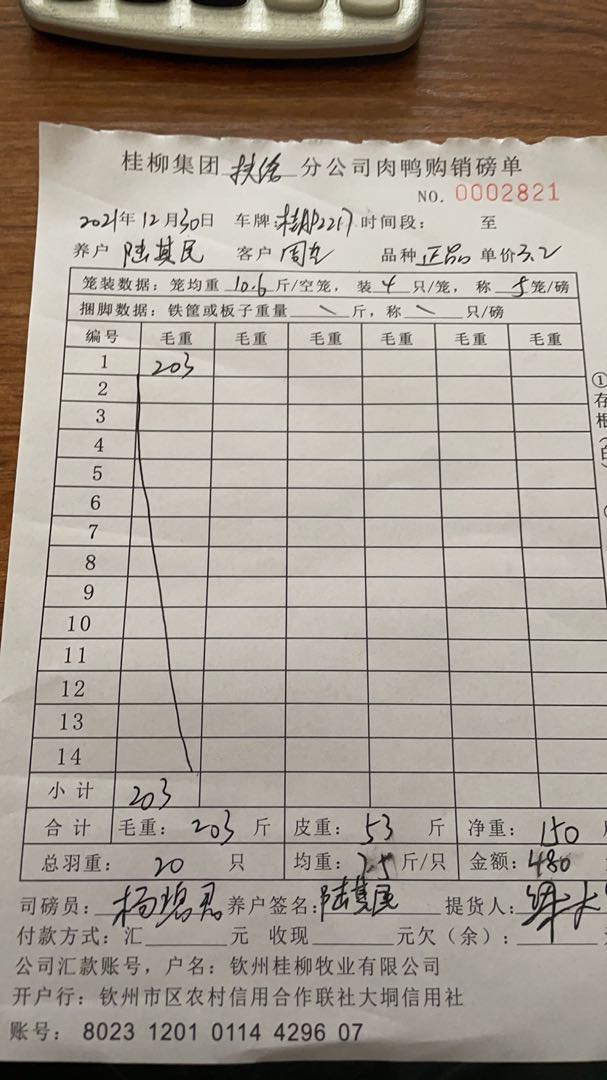 桂柳集团 分公司肉鸭购销磅单
NO. 0002821
2021年12月30日 车牌: 时间段: 至
养户 陆其民 客户 品种 正品 单价3.2
笼装数据: 笼均重 10.6 斤/空笼, 装 4 只/笼, 称 5 笼/磅
捆脚数据: 铁筐或板子重量 \ 斤, 称 \ 只/磅
编号 毛重 毛重 毛重 毛重 毛重 毛重
1 203
2
3
4
5
6
7
8
9
10
11
12
13
14
小计 203
合计 毛重: 203 斤 皮重: 53 斤 净重: 150
总羽重: 20 只 均重: 7.5 斤/只 金额: 480
司磅员: 养户签名: 陆其民 提货人:
付款方式: 汇 元 收现 元欠(余):
公司汇款账号, 户名: 钦州桂柳牧业有限公司
开户行: 钦州市区农村信用合作联社大垌信用社
账号: 8023 1201 0114 4296 07
①
存
根